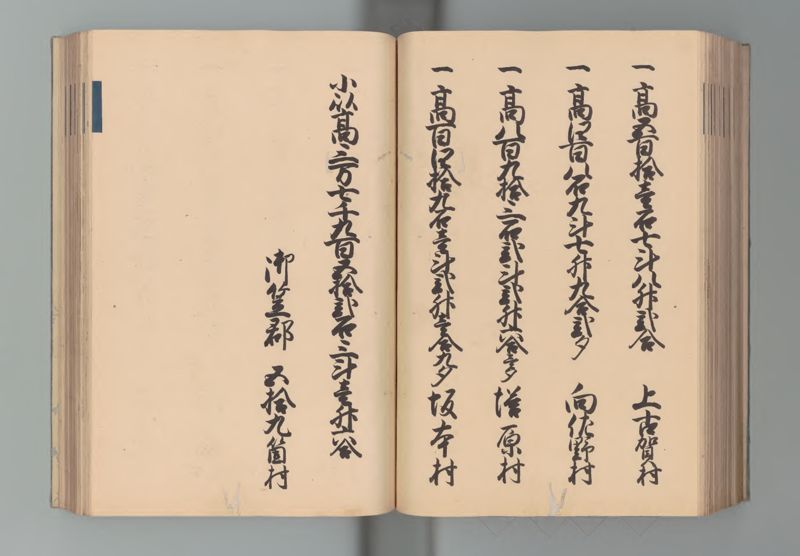 一高五百拾壱石七斗八升弐合 上古賀村
一高四百八石九斗七升九合弐夕 向佐野村
一高八百九拾三石弐斗弐升六合壱夕 塔原村
一高百四拾九石壱斗弐升壱合九夕 坂本村
小以高三万七千九百五拾弐石三斗壱升六合
御笠郡 五拾九箇村